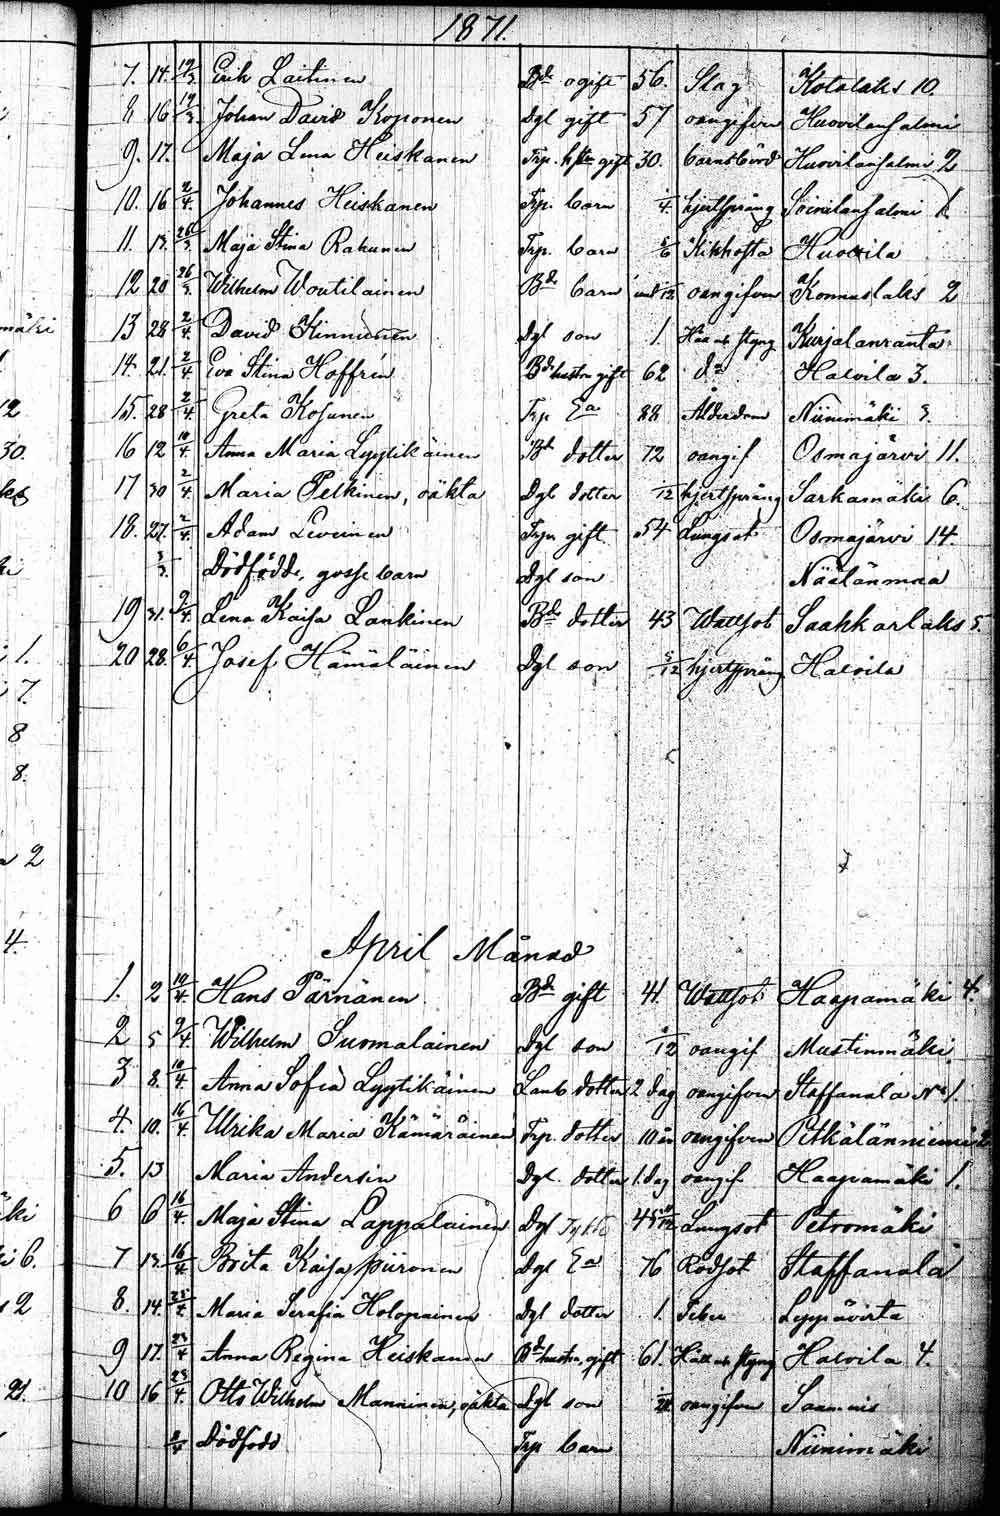 1871.
7. 14. 19/3. Erik Laitinen Bde ogift 56. Slag Kotalaks 10.
8 16 19/3. Johan David Koponen Dgl gift 57 oangifven Huovilansalmi
9. 17. Maja Lena Heiskanen Trp. hstr gift 30. barnsbörd Huovilansalmi 2
10. 16 2/4. Johannes Heiskanen Trp. barn 1/4. hjertsprång Soinilansalmi 1
11. 13. 26/3. Maja Stina Rahunen Trp. barn 5/6 Kikhosta Huovila
12 20 26/3. Wilhelm Woutilainen Bde barn /12 oangifven Konnuslaks 2
13 28 2/4. David Kinnunen Dgl son 1. Håll o. styng Kurjalanranta
14. 21. 2/4. Eva Stina Hoffrén Bde hustru gift 62 do Halvila 3.
15. 28 2/4 Greta Kosunen Trp Ea 88 Ålderdom Niinimäki 3.
16 12 10/4. Anna Maria Lyytikäinen Bde dotter 12 oangif Osmajärvi 11.
17 30 2/4. Maria Pelkinen, oäkta Dgl dotter /12 hjertsprång Sarkamäki 6.
18. 27. 2/4. Adam Leveinen Trpr gift 54 Lungsot Osmajärvi 14.
3/3. Dödfödde, gosse barn Dgl son Näälänmaa
19 31. 9/4. Lena Kaisa Lankinen Bde dotter 43 Wattsot Saahkarlaks 5.
20 28. 6/4. Josef Hämäläinen Dgl son 5/12 hjertsprång Halvila
April Månad
1. 2 10/4. Hans Pärnänen Bde gift 41. Wattsot Haapamäki 4.
2 5 9/4. Wilhelm Suomalainen Dgl son /12 oangif Mustinmäki
3 8. 10/4. Anna Sofia Lyytikäinen Lant dotter 2 dag oangifven Staffanala No 1.
4. 10. 16/4. Ulrika Maria Kämäräinen Trp. dotter 10 år oangifven Pitkälänniemi 2
5. 13 Maria Andersin Dgl. dotter 1. dag oangif Haapamäki 1.
6 6 16/4. Maja Stina Lappalainen Dgl 45 /12 Lungsot Petromäki
7 13. 16/4 Brita Kaisa Piironen Dgl Ea 76 Rödsot Staffanala
8. 14. Maria Serafia Holopainen Dgl dotter 1. Feber Leppävirta
9 17. 23/4 Anna Regina Heiskanen Bde hustru, gift 61. Håll o. styng Halvila 4.
10 16 23/4. Otto Wilhelm Manninen, oäkta Dgl son oangifven Saamais
2/4 Dödfödd Trp barn Niinimäki